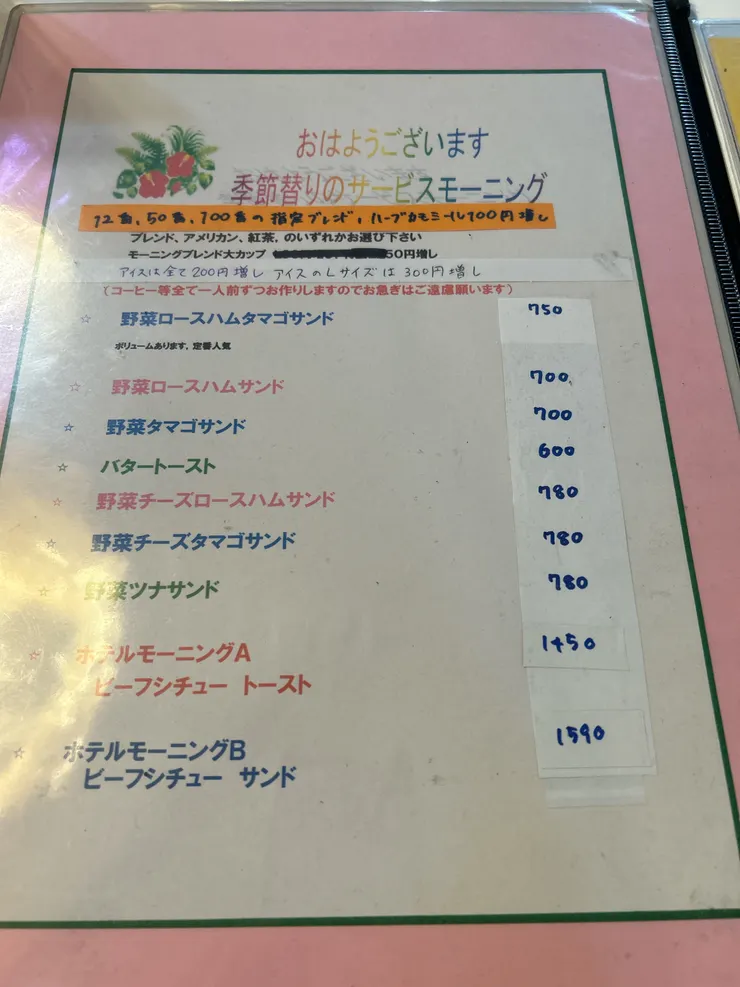 おはようございます
季節替りのサービスモーニング
12番、50番、100番の指定ブレンド、ハーブカモミール100円増し
ブレンド、アメリカン、紅茶、のいずれかお選び下さい
モーニングブレンド大カップ 50円増し
アイスは全て200円増し アイスのLサイズは300円増し
(コーヒー等全て一人前ずつお作りしますのでお急ぎはご遠慮願います)
☆ 野菜ロースハムタマゴサンド 750
ボリュームあります、定番人気
☆ 野菜ロースハムサンド 700
☆ 野菜タマゴサンド 700
☆ バタートースト 600
☆ 野菜チーズロースハムサンド 780
☆ 野菜チーズタマゴサンド 780
☆ 野菜ツナサンド 780
☆ ホテルモーニングA 1450
ビーフシチュー トースト
☆ ホテルモーニングB 1590
ビーフシチュー サンド